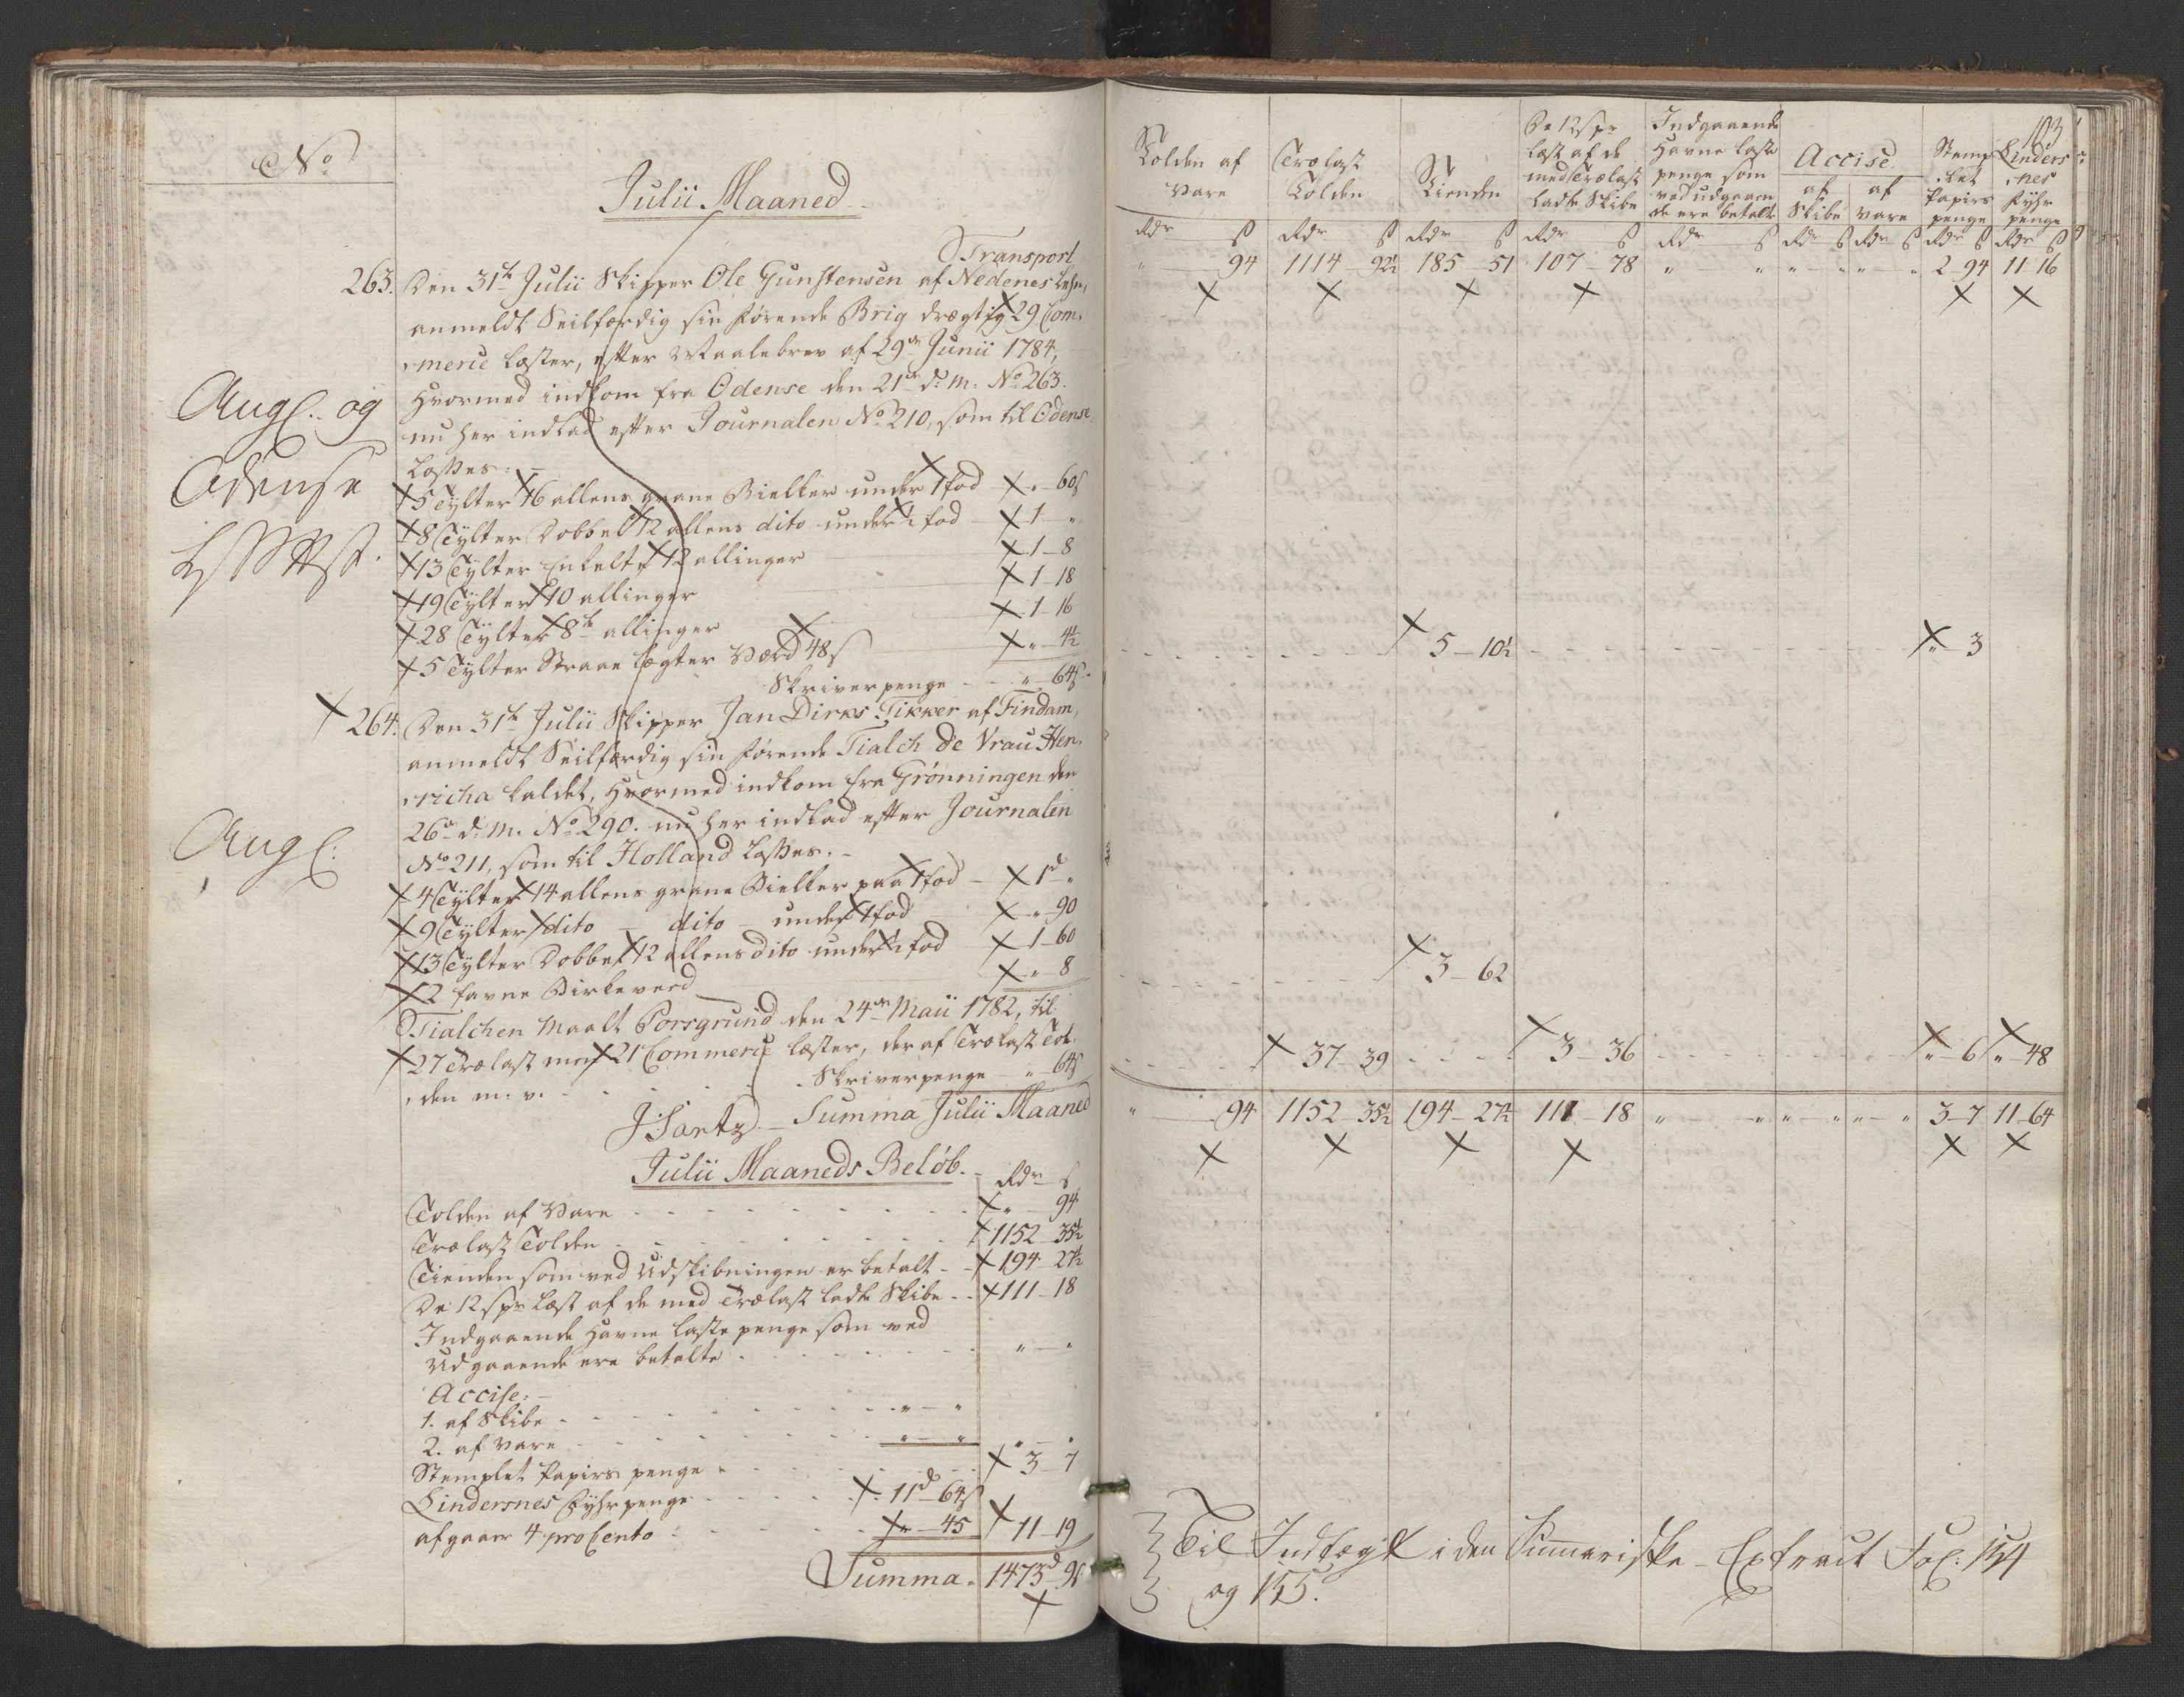 No
Julii Maaned
Transport
263. Den 31te Julii Skipper Ole Gunstensen af Nedenes Lehn,
anmeldt Seilfærdig sin førende Brig drægtig 29 Com-
merce Læster, efter Maalebrev af 29de Junii 1784,
Hvormed indkom fra Odense den 21de d: M: No 263.
nu her indlad efter Journalen No 210, som til Odense
Losses:
5 Tylter 16 allens grane Bielker under 1 fod " - 60 s
8 Tylter Dobbelt 12 allens dito under ½ fod - 1 - "
13 Tylter Enkelte 12 allinger 1 - 8
19 Tylter 10 allinger 1 - 18
28 Tylter 8te allinger 1 - 16
5 Tylter Straae Lægter Værd 48 s " - 4½
Skriverpenge - " - 64 s
Aug: og
Odense
264. Den 31te Julii Skipper Jan Dirks Tikker af Findam,
anmeldt Seilfærdig sin førende Tialch De Vrau Hen-
richa kaldet, Hvormed indkom fra Grønningen den
26de d: M: No 290. nu her indlad efter Journalen
No 211, som til Holland Losses. -
4 Tylter 14 allens grane Bielker paa 1 fod - 1d - "
9 Tylter dito - dito - under 1 fod " - 90
13 Tylter Dobbelt 12 allens dito under ½ fod 1 - 60
2 favne Birkeved " - 8
Tialchen Maalt Porsgrund den 24de Maii 1782, til
27 Trælast men 21 Commerce Læster, der af Trælast Tol-
den m: v. - Skriverpenge - " - 64 s
Aug:
Summa Julii Maaned
Julii Maaneds Beløb. - Rdr s
Tolden af Vare " - 94
Trælast Tolden 1152 - 35½
Tienden som ved Udskibningen er betalt - 194 - 27½
De 12 s pr Læst af de med Trælast ladte Skibe - 111 - 18
Indgaaende Havne Laste penge som ved
Udgaaende ere betalte " - "
Accise: -
1. af Skibe - " - "
2. af Vare " - " " - "
Stemplet Papiirs penge 3 - 7
Lindersnes Fyhr penge 11d - 64 s
afgaaer 4 pro Cento " - 45 11 - 19
Summa. 1473d - 9 s
103
Tolden af Vare
Trælast Tolden
Tienden
De 12 s pr Læst af de med Trælast ladte Skibe
Indgaaende Havne Laste penge som ved udgaaende ere betalte
Accise
af Skibe
af Vare
Stemp-let Papiirs penge
Linders-nes Fyhr penge
Rdr s Rdr s Rdr s Rdr s Rdr s Rdr s Rdr s Rdr s Rdr s
" 94 1114 - 92½ 185 - 51 107 - 78 " " " - " " - " 2 - 94 11 - 16
5 - 10½ " 3
3 - 62
37 - 39 3 - 36 " - 6 " - 48
" 94 1152 - 35½ 194 - 27½ 111 - 18 " - " " - " " - " 3 - 7 11 - 64
Til Indtægt i den Summariske Extract Fol: 154
og 155.